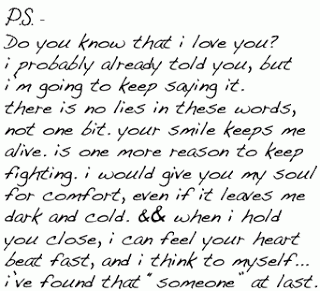 P.S. -
Do you know that i love you?
i probably already told you, but
i'm going to keep saying it.
there is no lies in these words,
not one bit. your smile keeps me
alive. is one more reason to keep
fighting. i would give you my soul
for comfort, even if it leaves me
dark and cold. && when i hold
you close, i can feel your heart
beat fast, and i think to myself...
i've found that "someone" at last.